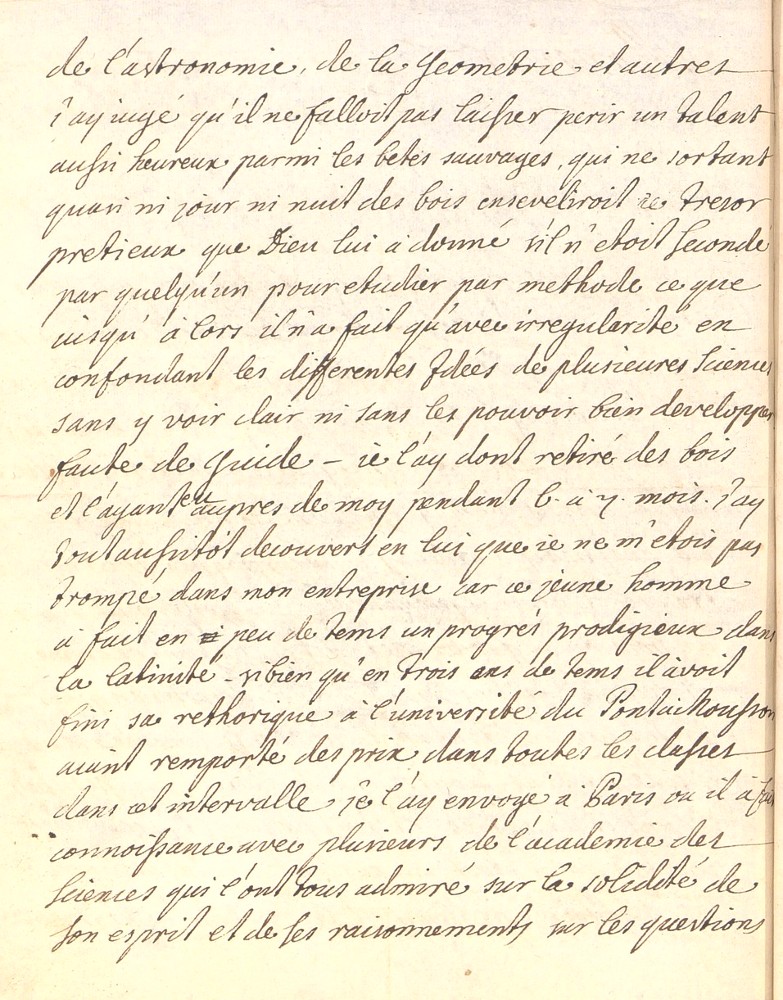 de l'astronomie, de la Geometrie et autres
j'ay iugé qu'il ne falloit pas laisser perir un talent
aussi heureux parmi les betes sauvages, qui ne sortant
quasi ni jour ni nuit des bois enseveliroit ce tresor
pretieux que Dieu lui a donné s'il n'etoit secondé
par quelqu'un pour etudier par methode ce que
iusqu'à lors il n'a fait qu'avec irregularité en
confondant les differentes Idées de plusieures sciences
sans y voir clair ni sans les pouvoir bien developper
faute de Guide - ie l'ay dont retiré des bois
et l'ayant eu aupres de moy pendant 6. à 7. mois. j'ay
tout aussitôt decouvert en lui que ie ne m'etois pas
trompé dans mon entreprise car ce jeune homme
à fait en peu de tems un progrés prodigieux dans
la latinité - si bien qu'en trois ans de tems il avoit
fini sa rethorique à l'université du Pontàmousson
aiant remporté des prix dans toutes les classes
dans cet intervalle je l'ay envoyé à Paris ou il à fait
connoissance avec plusieurs de l'academie des
sciences qui l'ont tous admiré sur la solidité de
son esprit et de ses raisonnements sur les questions